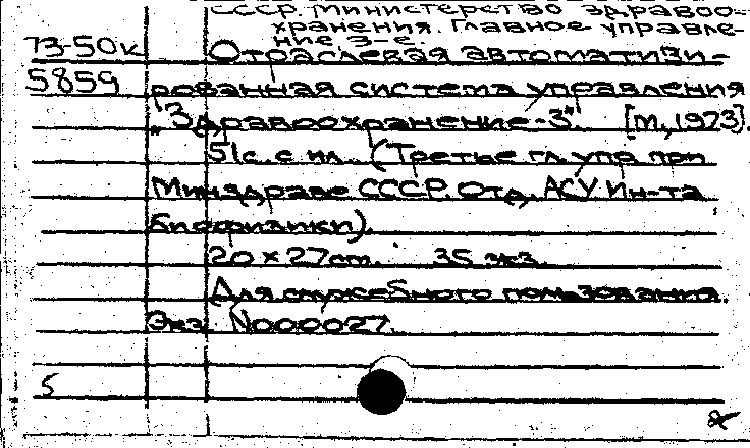 СССР. Министерство здравоо-
хранения. Главное управле-
ние 3-е.
73-50к Отраслевая автоматизи-
5859 рованная система управления
"Здравоохранение-3". [М., 1973].
51с. с ил. (Третье гл. упр. при
Минздраве СССР. Отд. АСУ Ин-та
биофизики).
20×27см. 35 экз.
Для служебного пользования.
Экз. №000027.
5